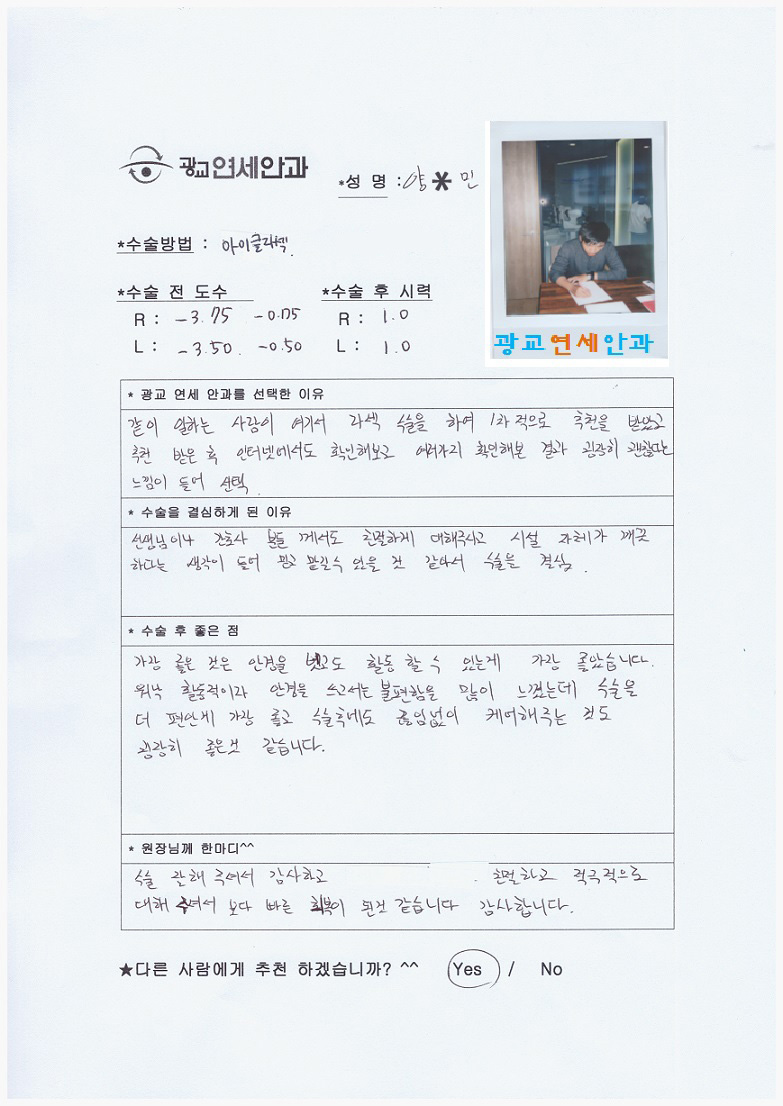 광교연세안과
*성 명 : 양*민
*수술방법 : 아이클라섹.
*수술 전 도수 *수술 후 시력
R : -3.75 -0.75 R : 1.0
L : -3.50. -0.50 L : 1.0
광교연세안과
* 광교 연세 안과를 선택한 이유
같이 일하는 사람이 여기서 라섹 수술을 하여 1차적으로 추천을 받았고
추천 받은 후 인터넷에서도 확인해보고 여러가지 확인해본 결과 굉장히 괜찮다는
느낌이 들어 선택.
* 수술을 결심하게 된 이유
선생님이나 간호사 분들 께서도 친절하게 대해주시고 시설 자체가 깨끗
하다는 생각이 들어 믿고 맡길수 있을 것 같아서 수술을 결심.
* 수술 후 좋은 점
가장 좋은 것은 안경을 벗고도 활동 할 수 있는게 가장 좋았습니다.
워낙 활동적이라 안경을 쓰고서는 불편함을 많이 느꼈는데 수술을
더 편안게 가장 좋고 수술후에도 끊임없이 케어해주는 것도
굉장히 좋은것 같습니다.
* 원장님께 한마디^^
수술 잘해 주셔서 감사하고 . 친절하고 적극적으로
대해 주셔서 보다 빠른 회복이 된것 같습니다 감사합니다.
★다른 사람에게 추천 하겠습니까? ^^ Yes / No